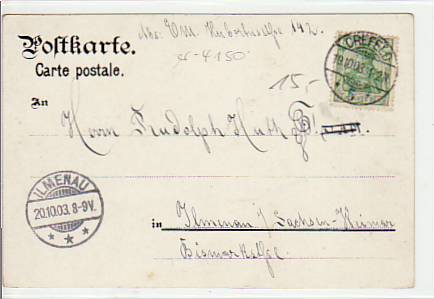 Abs: E. M. Hubertusstr 142.
Postkarte.
Carte postale.
4150
15,-
CREFELD
19.10.03.
An
Herrn Rudolph Huth
ILMENAU
20.10.03. 8-9V.
in Ilmenau i/ Sachsen-Weimar
Bismarkstr.